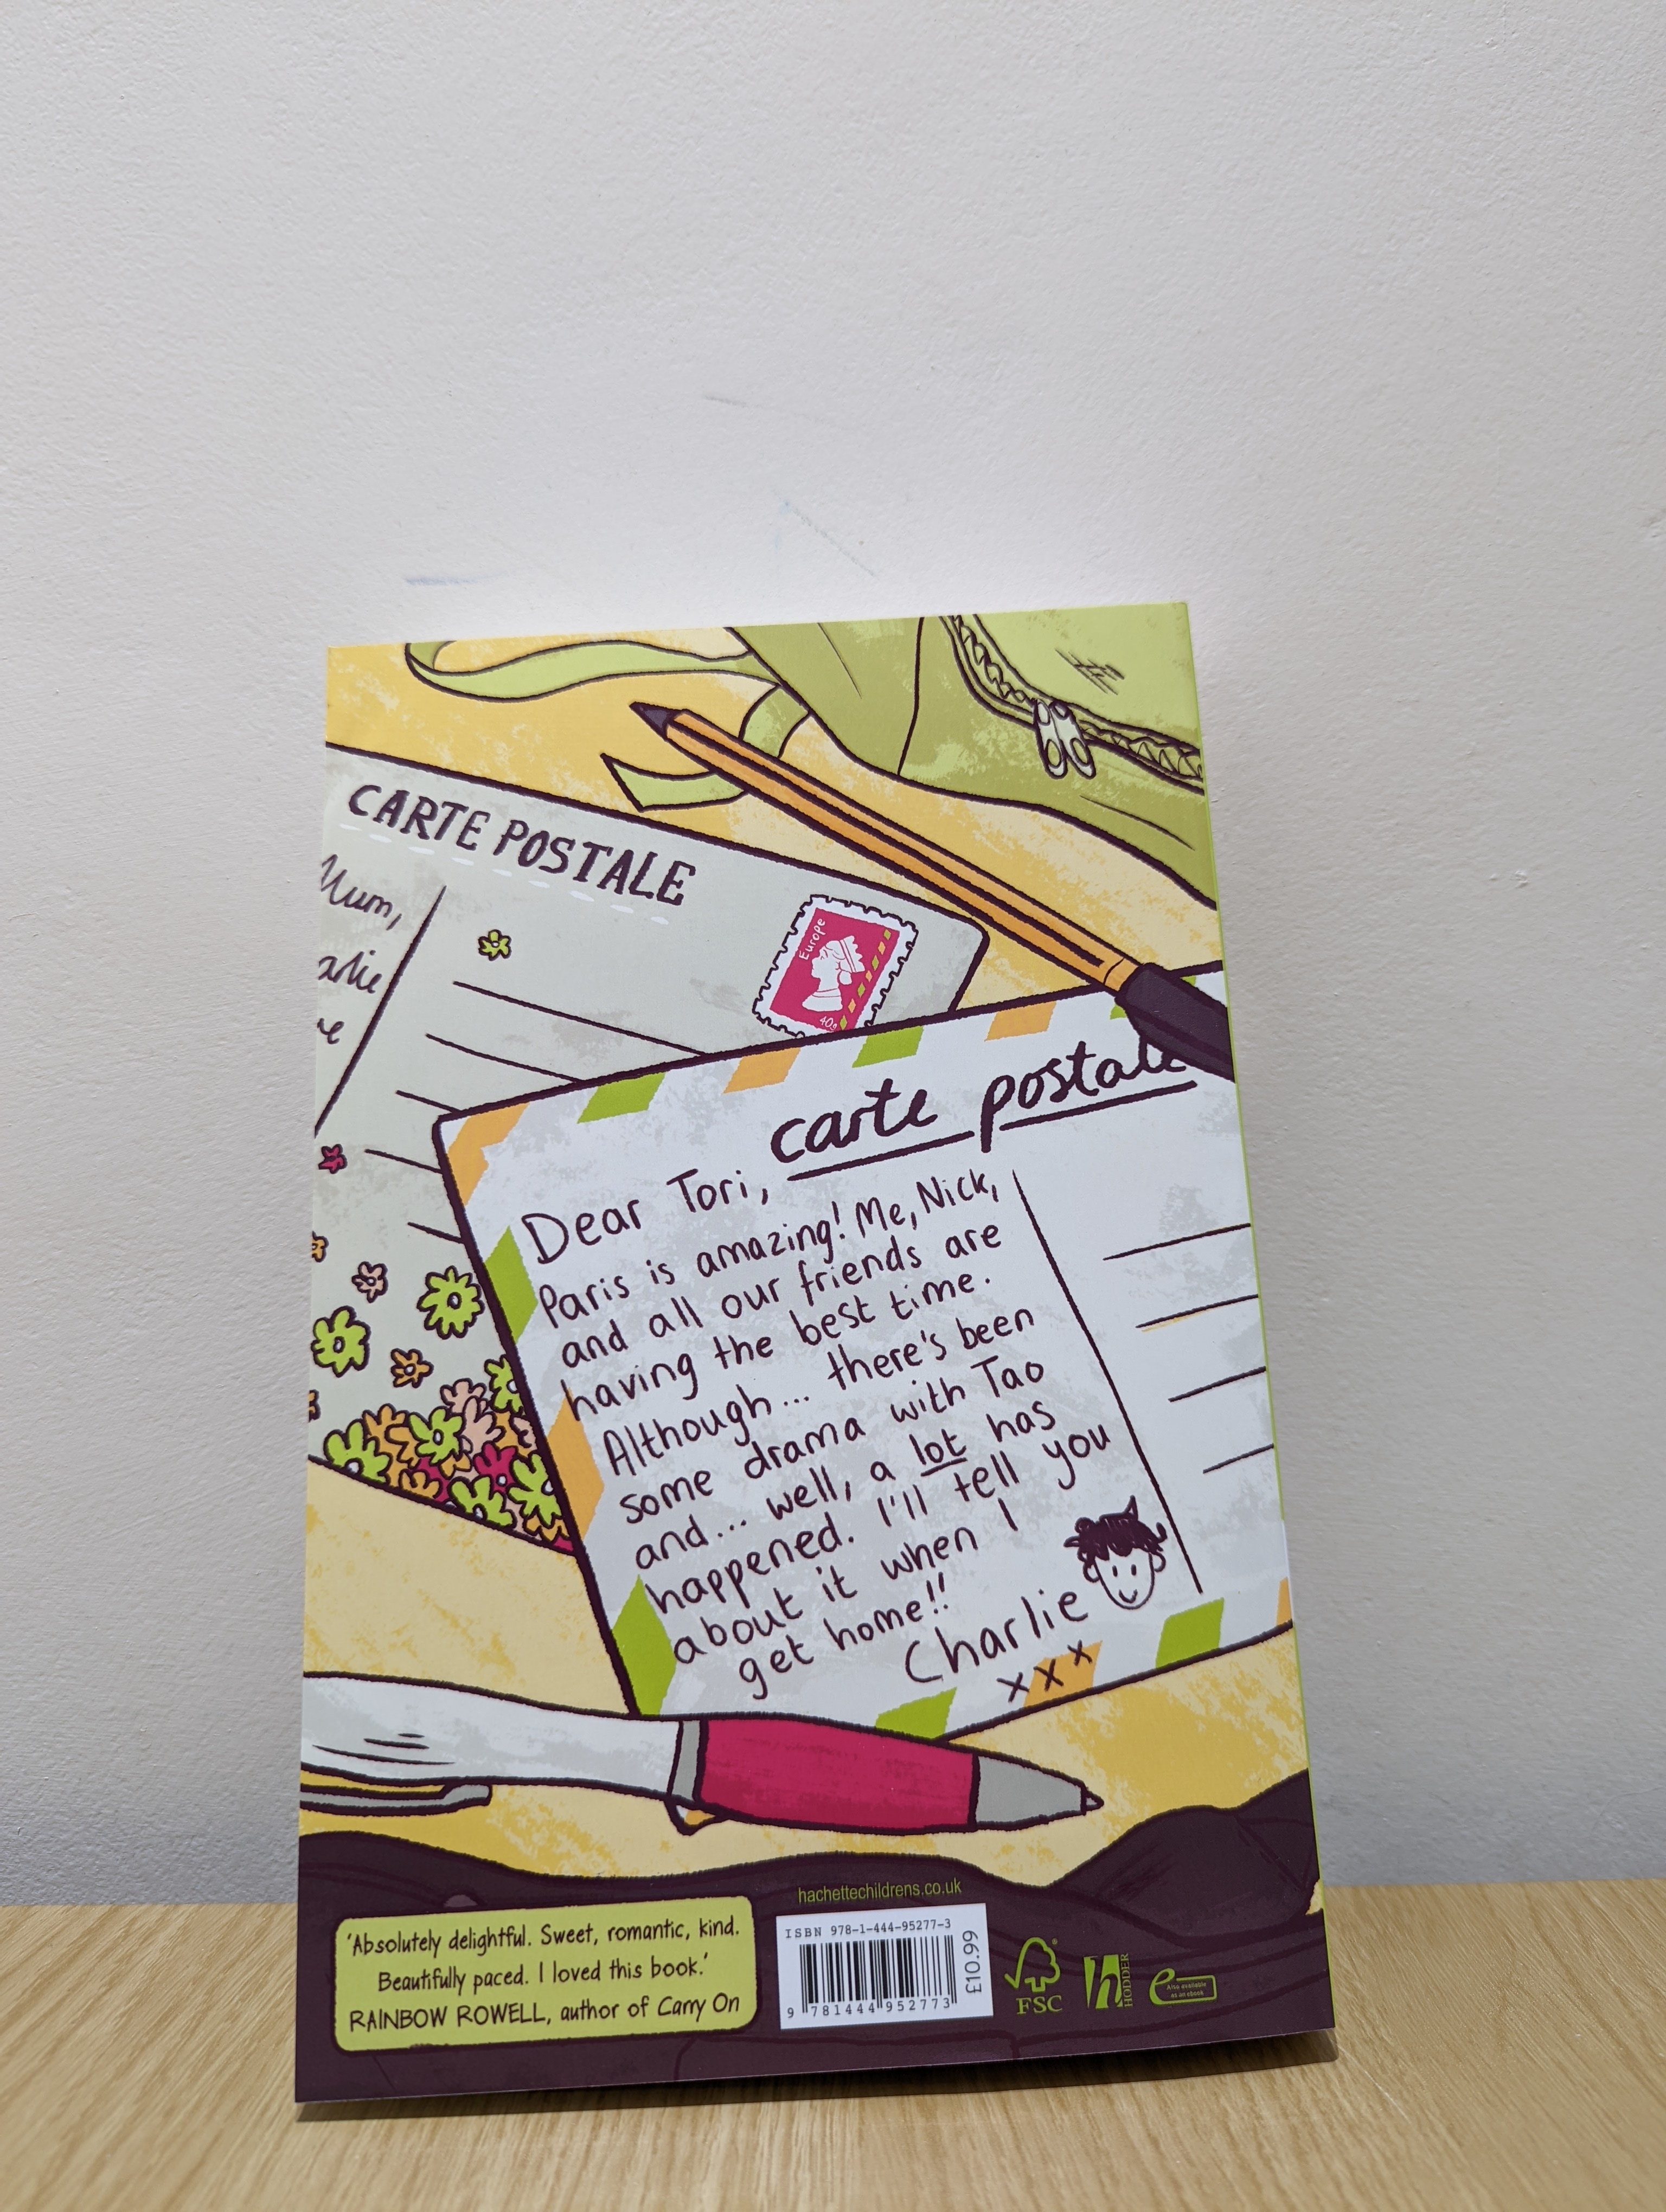 CARTE POSTALE
Mum,
Europe
40g
carte postale
Dear Tori,
Paris is amazing! Me, Nick,
and all our friends are
having the best time.
Although... there's been
some drama with Tao
and... well, a lot has
happened. I'll tell you
about it when I
get home!!
Charlie
x x x
hachettechildrens.co.uk
'Absolutely delightful. Sweet, romantic, kind.
Beautifully paced. I loved this book.'
RAINBOW ROWELL, author of Carry On
ISBN 978-1-444-95277-3
£10.99
9 781444 952773
FSC
h HODDER
e Also available
as an ebook